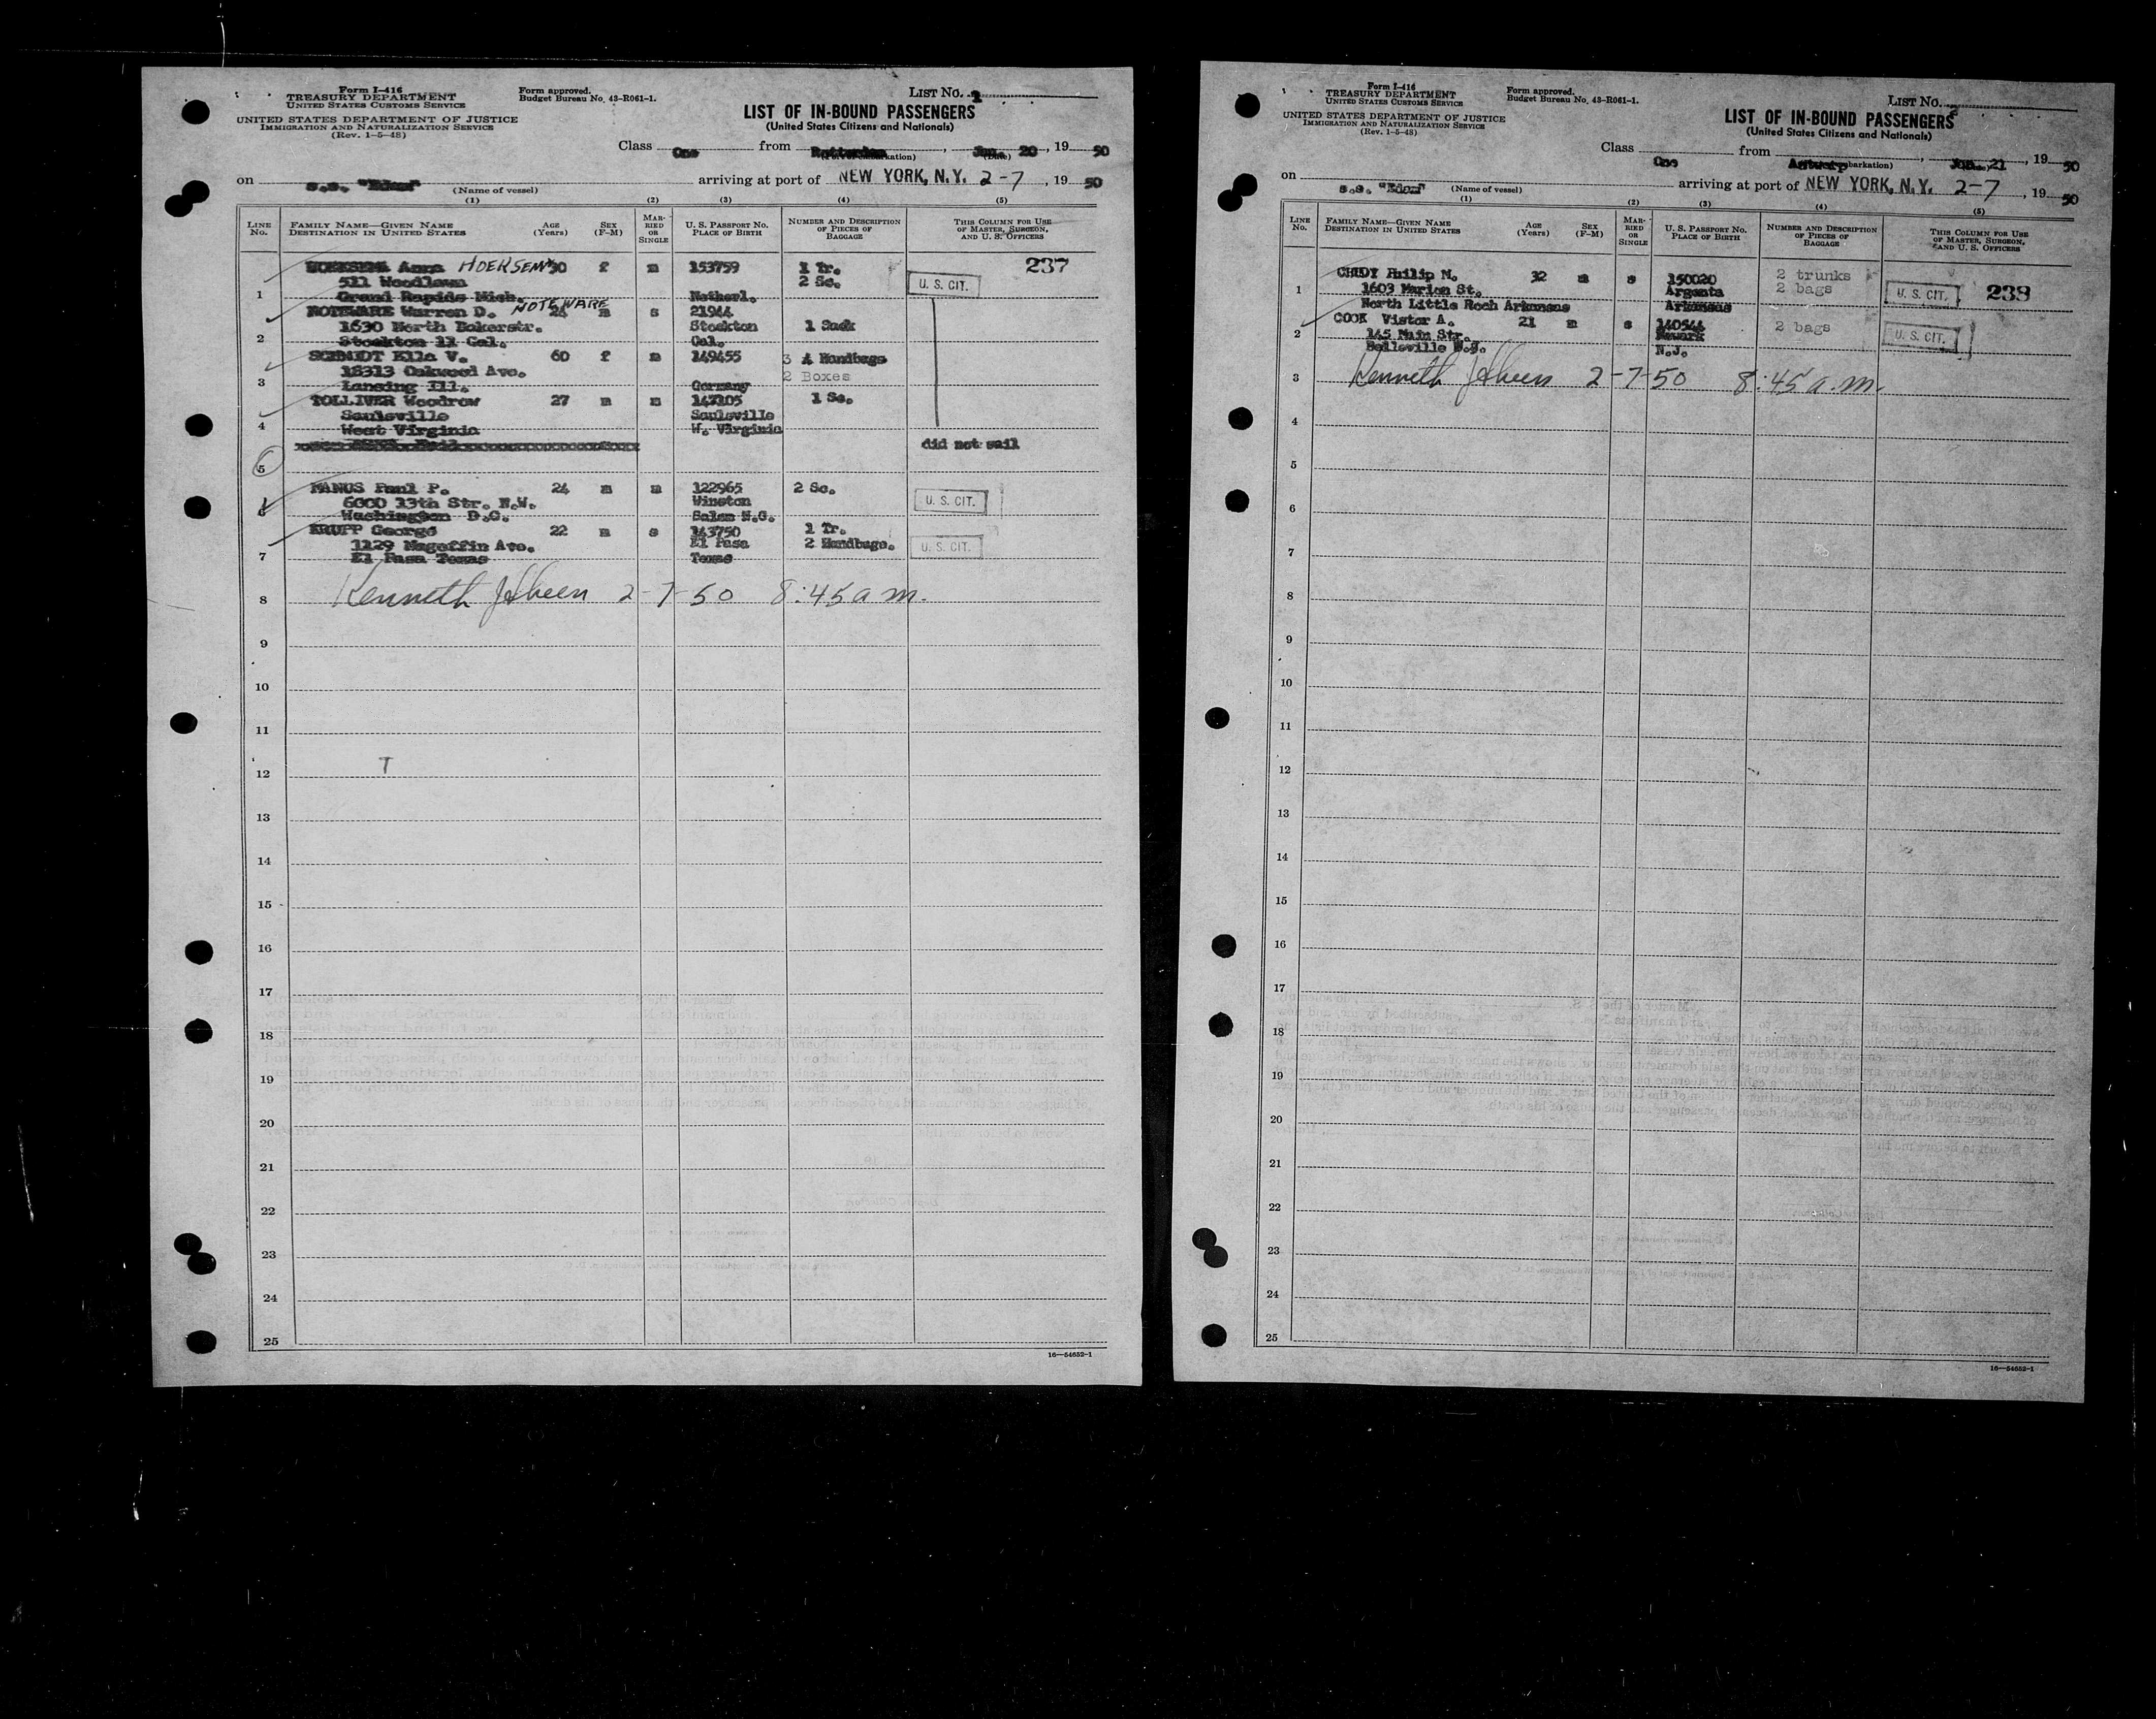 Form I-416
TREASURY DEPARTMENT
UNITED STATES CUSTOMS SERVICE
UNITED STATES DEPARTMENT OF JUSTICE
IMMIGRATION AND NATURALIZATION SERVICE
(Rev. 1-5-48)
Form approved.
Budget Bureau No. 43-R061-1.
LIST NO.
LIST OF IN-BOUND PASSENGERS
(United States Citizens and Nationals)
Class One from Rotterdam, Jan. 20, 19 50
on s.s. "Edam" arriving at port of NEW YORK, N.Y. 2-7, 19 50
(Name of vessel)
(1) (2) (3) (4) (5)
LINE No. FAMILY NAME—GIVEN NAME DESTINATION IN UNITED STATES AGE (Years) SEX (F-M) MARRIED OR SINGLE U. S. PASSPORT NO. PLACE OF BIRTH NUMBER AND DESCRIPTION OF PIECES OF BAGGAGE THIS COLUMN FOR USE OF MASTER, SURGEON, AND U. S. OFFICERS
Anna HOERSEMA f m 153759 1 Tr. 237
511 Woodlawn 2 Sc. U. S. CIT.
1 Grand Rapids Mich. Netherl.
NOTEWARE Warren D. NOTEWARE 24 m s 21944
1630 North Bakerstr. Stockton 1 Sack
2 Stockton 11 Cal. Cal.
SCHMIDT Ella V. 60 f m 149455 3 Handbags
18313 Oakwood Ave. 2 Boxes
3 Lansing Ill. Germany
TOLLIVER Woodrow 27 m m 147105 1 Sc.
Saulsville Saulsville
4 West Virginia W. Virginia
did not sail
5
MANUS Paul P. 24 m m 122965 2 Sc.
6000 13th Str. N.W. Winston U. S. CIT.
6 Washington D.C. Salem N.C.
KRUPP George 22 m s 143750 1 Tr.
1129 Magoffin Ave. El Pasa 2 Handbags. U. S. CIT.
7 El Pasa Texas Texas
8 Kenneth 2-7-50 8:45 a m.
9
10
11
12
13
14
15
16
17
18
19
20
21
22
23
24
25
16—54652-1
Form I-416
TREASURY DEPARTMENT
UNITED STATES CUSTOMS SERVICE
UNITED STATES DEPARTMENT OF JUSTICE
IMMIGRATION AND NATURALIZATION SERVICE
(Rev. 1-5-48)
Form approved.
Budget Bureau No. 43-R061-1.
LIST NO.
LIST OF IN-BOUND PASSENGERS
(United States Citizens and Nationals)
Class One from Antwerp, Jan. 21, 19 50
on s.s. "Edam" arriving at port of NEW YORK, N.Y. 2-7, 19 50
(Name of vessel)
(1) (2) (3) (4) (5)
LINE No. FAMILY NAME—GIVEN NAME DESTINATION IN UNITED STATES AGE (Years) SEX (F-M) MARRIED OR SINGLE U. S. PASSPORT NO. PLACE OF BIRTH NUMBER AND DESCRIPTION OF PIECES OF BAGGAGE THIS COLUMN FOR USE OF MASTER, SURGEON, AND U. S. OFFICERS
Philip M. 32 m s 150020 2 trunks
1 1603 Marion St. Argenta 2 bags U. S. CIT. 238
North Little Roch Arkansas Arkansas
COOK Victor A. 21 m s 140544 2 bags
2 145 Main Str. Newark U. S. CIT.
Belleville N.J. N.J.
3 Kenneth 2-7-50 8:45 a.m.
4
5
6
7
8
9
10
11
12
13
14
15
16
17
18
19
20
21
22
23
24
25
16—54652-1